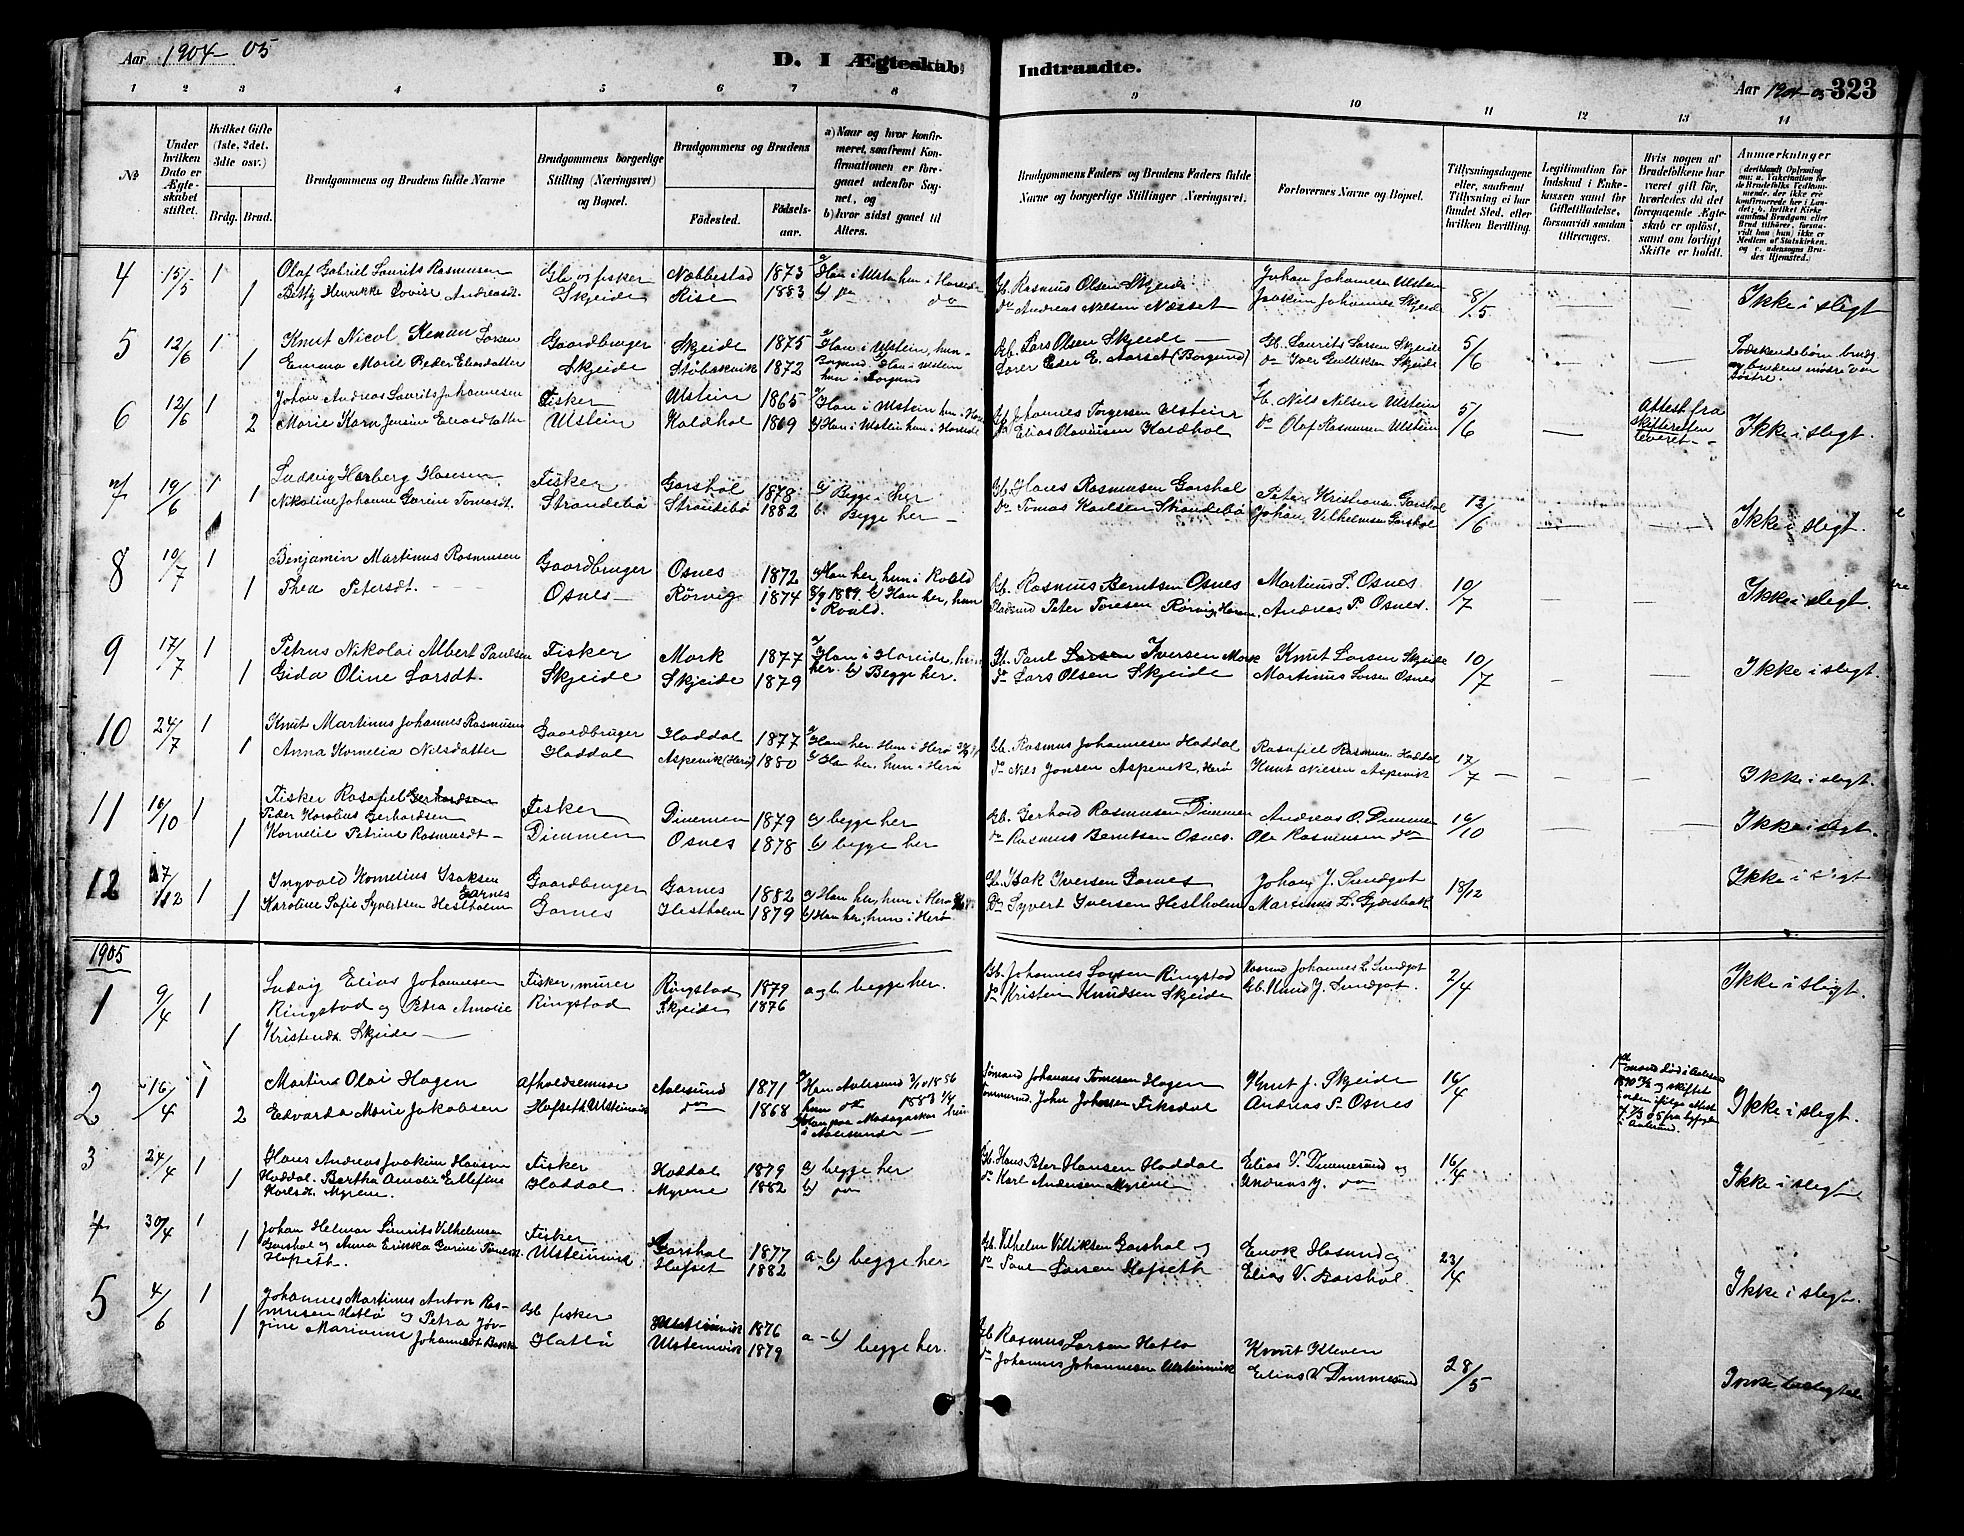 Aar 1904-05
D. I Ægteskab Indtraadte.
Aar 1904-05 323
1 2 3 4 5 6 7 8 9 10 11 12 13 14
№
Under hvilken Dato er Ægteskabet stiftet.
Hvilket Gifte (1ste, 2det, 3dte osv.)
Brdg. Brud.
Brudgommens og Brudens fulde Navne
Brudgommens borgerlige Stilling (Næringsvei) og Bopæl.
Brudgommens og Brudens
Fødested. Fødselsaar.
a) Naar og hvor konfirmeret, saafremt Konfirmationen er foregaaet udenfor Sognet, og
b) hvor sidst gaaet til Alters.
Brudgommens Faders og Brudens Faders fulde Navne og borgerlige Stillinger (Næringsvei).
Forlovernes Navne og Bopæl.
Tillysningsdagene eller, saafremt Tillysning ei har fundet Sted, efter hvilken Bevilling.
Legitimation for Indskud i Enkekassen samt for Giftetilladelse, forsaavidt saadan tiltrænges.
Hvis nogen af Brudefolkene har været gift før, hvorledes da det foregaaende Ægteskab er opløst, samt om lovligt Skifte er holdt.
Anmærkninger
4 15/5 1 Olaf Gabriel Laurits Rasmussen Gb. og fisker Næbbestad 1873 a) Han i Ulstein hun i Hareide Gb. Rasmus Olsen Skjeide Johan Johannesen Ulstein 8/5 Ikke i slegt
1 Betty Henrikke Lovise Andreasdt. Skjeide Rise 1883 b) do do do Andreas Nilsen Næsset Joakim Johannes Skjeide
5 12/6 1 Knut Nicol Kenan Larsen Gaardbruger Skjeide 1875 a) Han i Ulstein, hun Gb. Lars Olsen Skjeide Gb. Laurits Larsen Skjeide 5/6 Sødskendebørn brudg
1 Emma Marie Peder Elisdatter Skjeide Støbakvik 1872 Borgund. Han i Ulstein hun i Borgund Lærer Peder E. Aarset (Borgund) do Iver Skjeide og brudens mødre var søstre.
6 12/6 1 Johan Andreas Laurits Johannesen Fisker Ulstein 1865 a) Han i Ulstein hun i Gb. Johannes Torgersen Ulstein Gb. Nils Nilsen Ulstein 5/6 Attest fra Skifteretten leveret Ikke i slegt.
2 Marie Karn Jensine Eliasdatter Ulstein Kaldhol 1869 b) Han i Ulstein hun i Hareide Elias Olavsen Kaldhol do Olaf Rasmusen Ulstein
7 19/6 1 Ludvig Herberg Hansen Fisker Garshol 1878 a) Begge her Gb. Hans Rasmusen Garshol Peter Kristians. Garshol 12/6 Ikke i slegt.
1 Nikoline Johanne Gurine Tomasdt. Strandebø Strandebø 1882 b. Begge her do Tomas Karlsen Strandebø Johan Vilhelmsen Garshol
8 10/7 1 Benjamin Martinus Rasmusen Gaardbruger Osnes 1872 a) Han her, hun i Roald Gb. Rasmus Berntsen Osnes Martinus L. Osnes 10/7 Ikke i slegt.
1 Thea Petersdt. Osnes Rörvig 1874 1889. b) Han her, hun i Roald. Peter Toresen Rørvig, Haram Andreas P. Osnes.
9 17/7 1 Petrus Nikolai Albert Paulsen Fisker Mork 1877 a) Han i Hareide, hun Gb. Paul Iversen Mork Knut Larsen Skjeide 10/7 Ikke i slegt.
1 Gida Oline Larsdt. Skjeide Skjeide 1879 her. b) Begge her. do Lars Olsen Skjeide Martinus Larsen Osnes
10 24/7 1 Knut Martinus Johannes Rasmusen Gaardbruger Haddal 1877 a) Han her. Hun i Herø Gb. Rasmus Johannesen Haddal Rasafiel Rasmusen Haddal 17/7 Ikke i slegt.
1 Anna Kornelia Nilsdatter Haddal Aspevik (Herø) 1880 b) Han her, hun i Herø do Nils Jonsen Aspevik, Herø Knut Nilsen Aspevik
11 16/10 1 Fisker Rasafiel Gerhardsen
Peder Karolius Gerhardsen Fisker Dimmen 1879 a) begge her Gb. Gerhard Rasmusen Dimmen Andreas O. Dimmen 16/10 Ikke i slegt.
1 Kornelie Petrine Rasmusdt Dimmen Osnes 1878 b) begge her do Rasmus Berntsen Osnes. Ole Rasmusen do
12 27/12 1 Ingvald Kornelius Isaksen Garnes Gaardbruger Garnes 1882 a) Han her, hun i Herø Gb. Isak Iversen Garnes Johan J. Sundgot 18/12 Ikke i slegt
1 Karoline Sofie Syvertsen Hestholm Garnes Hestholm 1879 b) Han her, hun i Herø Do Syvert Iversen Hestholm Martinus L. Gjærsbak
1905
1 9/4 1 Ludvig Elias Johannesen Fisker, murer Ringstad 1879 a og b. begge her. Gb. Johannes Larsen Ringstad Johannes L. Sundgot 2/4 Ikke i slegt.
Ringstad og Petra Amalie Ringstad Skjeide 1876 do Kristen Knudsen Skjeide Gb. Knud J. Sundgot.
1 Kristensdt. Skjeide
2 16/4 1 Martin Olai Hagen Afholdsemissær Aalesund 1871 a) Han Aalesund 1886 Sømand Johannes Tomesen Hagen Knut J. Skjeide 16/4 Ikke i slegt.
2 Edvarda Marie Jakobsen Hofseth Ulsteinvik do 1868 hun do 1883 Tømmermd. John Johnsen Fiksdal Andreas P. Osnes
b) Han paa Madagaskar hun i Aalesund
1ste mand død i Aalesund og skiftet i orden ifølge Attest fra byfogden i Aalesund.
3 24/4 1 Hans Andreas Joakim Hansen Fisker Haddal 1879 a) begge her Gb. Hans Peter Hansen Haddal Elias V. Dimmesund og 16/4 Ikke i slegt
1 Haddal. Bertha Amalie Ellefine Haddal. Myrene 1882 b) do do Karl Andersen Myrene Andreas J. do
Karlsdt. Myrene.
4 30/4 1 Johan Helmar Laurits Vilhelmsen Fisker Garshol 1877 a-b) begge her Gb. Vilhelm Villiksen Garshol og Enok Hasund og 23/4 Ikke i slegt.
1 Garshol og Anna Erikka Gurine Ulsteinvik Hofset 1882 do Paul Larsen Hofseth Elias V. Garshol.
Hofseth.
5 4/6 1 Johannes Martinus Anton Ras- Gb. fisker Ulsteinvik 1876 a-b) begge her. Gb. Rasmus Larsen Hatlø Knut Kleven 28/5 Ikke beslegtede
1 musen Hatlø og Petra Jør- Hatlö Ulsteinvik 1879 do Johannes Johannesen Ulsteinvik Elias V Dimmesund
gine Marianne
Johannesdt Bakke